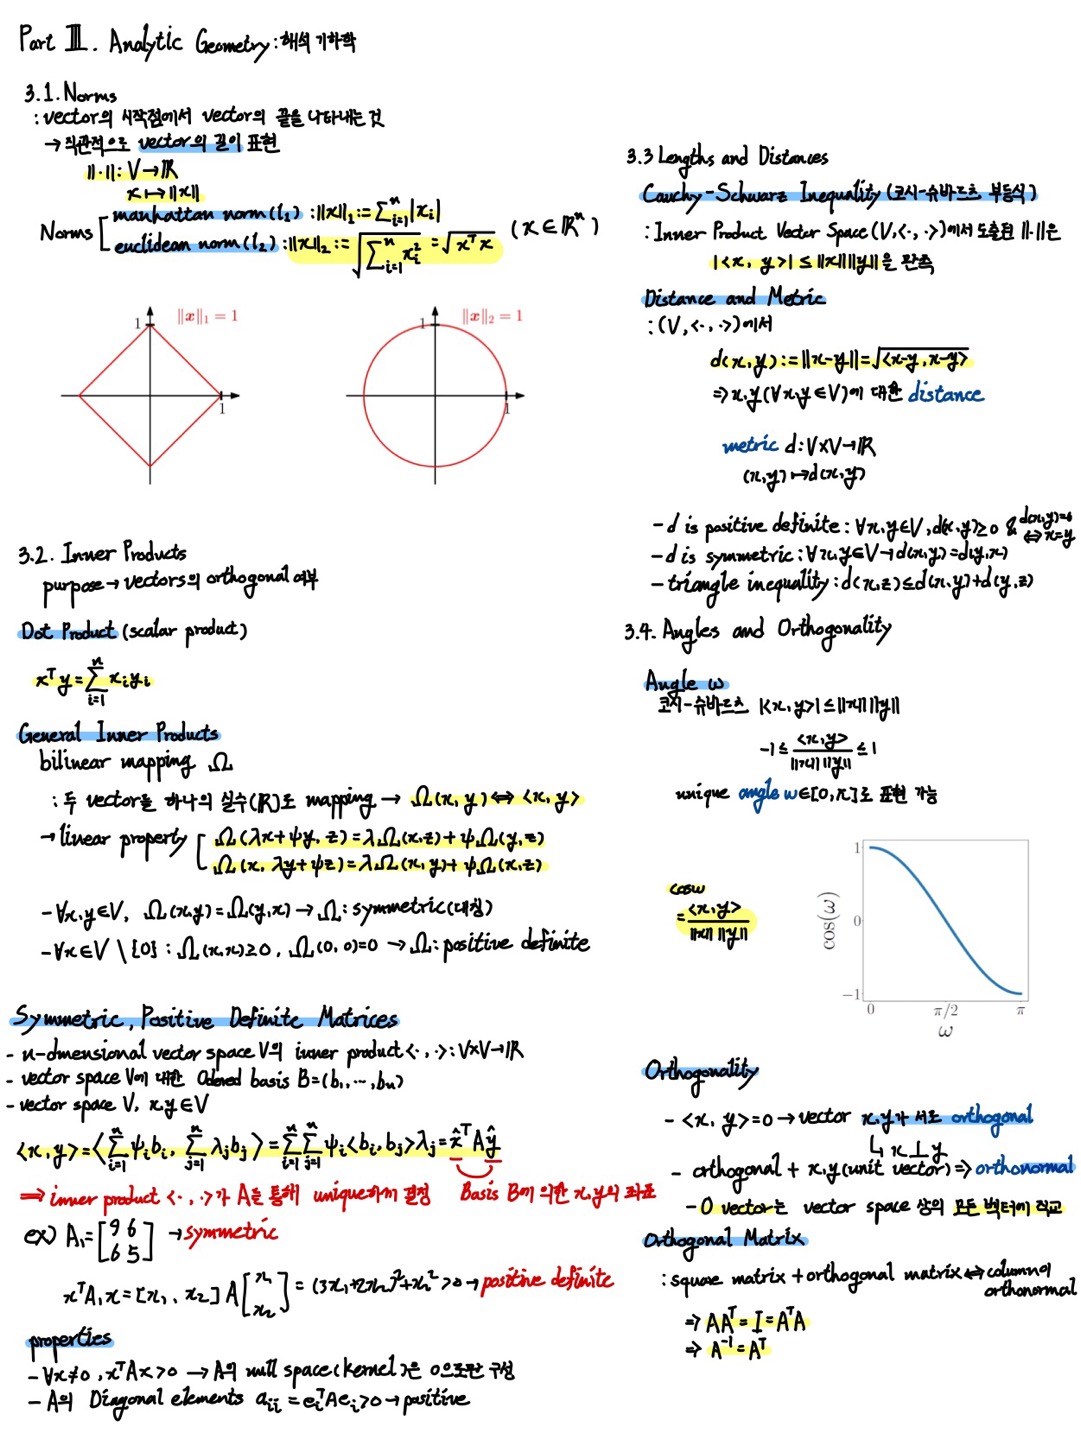 Part Ⅲ. Analytic Geometry : 해석 기하학
3.1. Norms
: vector의 시작점에서 vector의 끝을 나타내는 것
→ 직관적으로 vector의 길이 표현
||·||: V→ℝ
x ↦ ||x||
Norms [ manhattan norm(l₁) : ||x||₁ := Σⁿᵢ₌₁|xᵢ|
euclidean norm(l₂) : ||x||₂ := √(Σⁿᵢ₌₁ xᵢ²) = √(xᵀx) (x∈ℝⁿ)
||x||₁ = 1
1
1
||x||₂ = 1
1
1
3.2. Inner Products
purpose → vectors의 orthogonal 여부
Dot Product (scalar product)
xᵀy = Σⁿᵢ₌₁ xᵢyᵢ
General Inner Products
bilinear mapping Ω
: 두 vector를 하나의 실수(ℝ)로 mapping → Ω(x, y) ⇔ <x, y>
→ linear property [ Ω(λx+ψy, z) = λΩ(x,z) + ψΩ(y,z)
Ω(x, λy+ψz) = λΩ(x, y) + ψΩ(x,z)
- ∀x,y∈V, Ω(x,y) = Ω(y,x) → Ω: symmetric(대칭)
- ∀x∈V \ {0} : Ω(x,x)≥0, Ω(0, 0)=0 → Ω: positive definite
Symmetric, Positive Definite Matrices
- n-dmensional vector space V의 inner product <·, ·>: V×V→ℝ
- vector space V에 대한 Odered basis B=(b₁, ···, bₙ)
- vector space V, x,y∈V
<x, y> = <Σⁿᵢ₌₁ ψᵢbᵢ, Σⁿⱼ₌₁ λⱼbⱼ> = Σⁿᵢ₌₁ Σⁿⱼ₌₁ ψᵢ<bᵢ, bⱼ>λⱼ = x̂ᵀAŷ
⇒ inner product <·, ·>가 A를 통해 unique하게 결정
Basis B에 의한 x,y의 좌표
ex) A₁ = [9 6
6 5] → symmetric
xᵀA₁x = [x₁, x₂] A [x₁
x₂] = (3x₁+2x₂)²+x₂² > 0 → positive definite
properties
- ∀x≠0, xᵀAx>0 → A의 null space(kernel)은 0으로만 구성
- A의 Diagonal elements aᵢᵢ = eᵢᵀAeᵢ>0 → positive
3.3 Lengths and Distances
Cauchy-Schwarz Inequality (코시-슈바르츠 부등식)
: Inner Product Vector Space (V, <·, ·>)에서 도출된 ||·||은
|<x, y>| ≤ ||x|| ||y||을 만족
Distance and Metric
: (V, <·, ·>)에서
d(x, y) := ||x-y|| = √<x-y, x-y>
⇒ x,y (∀x,y∈V)에 대한 distance
metric d: V×V→ℝ
(x,y) ↦ d(x,y)
- d is positive definite : ∀x,y∈V, d(x,y)≥0 & d(x,y)=0 ⇔ x=y
- d is symmetric : ∀x,y∈V → d(x,y) = d(y,x)
- triangle inequality : d(x,z) ≤ d(x,y)+d(y,z)
3.4. Angles and Orthogonality
Angle ω
코시-슈바르츠 |<x, y>| ≤ ||x|| ||y||
-1 ≤ <x, y> / ||x|| ||y|| ≤ 1
unique angle ω∈[0, π]로 표현 가능
cosω
= <x, y> / ||x|| ||y||
cos(ω)
1
0
-1
0 π/2 π
ω
Orthogonality
- <x, y> = 0 → vector x,y가 서로 orthogonal
↳ x⊥y
- orthogonal + x,y(unit vector) ⇒ orthonormal
- 0 vector는 vector space 상의 모든 벡터에 직교
Orthogonal Matrix
: square matrix + orthogonal matrix ⇔ column이 orthonormal
⇒ AAᵀ = I = AᵀA
⇒ A⁻¹ = Aᵀ